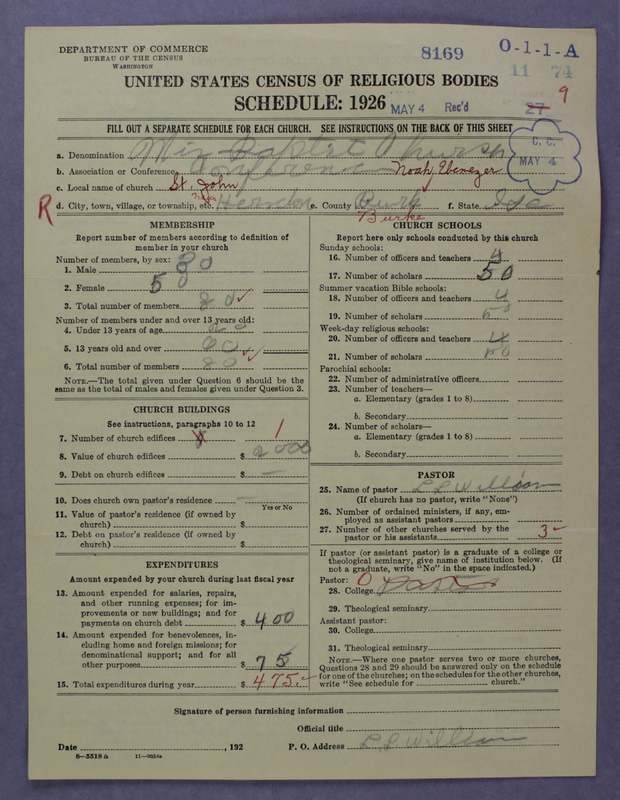 DEPARTMENT OF COMMERCE
BUREAU OF THE CENSUS
WASHINGTON
8169
O-1-1-A
11 74
UNITED STATES CENSUS OF RELIGIOUS BODIES
SCHEDULE: 1926
MAY 4 Rec'd
27 9
FILL OUT A SEPARATE SCHEDULE FOR EACH CHURCH. SEE INSTRUCTIONS ON THE BACK OF THIS SHEET
C. C.
MAY 4
a. Denomination Baptist Church
b. Association or Conference Conference Noah, Ebenezer
c. Local name of church St. John
R d. City, town, village, or township, etc. Herndon e. County Burk f. State
Burke
MEMBERSHIP
Report number of members according to definition of member in your church
Number of members, by sex:
1. Male 30
2. Female 50
3. Total number of members 80
Number of members under and over 13 years old:
4. Under 13 years of age 20
5. 13 years old and over 60
6. Total number of members 80
NOTE.—The total given under Question 6 should be the same as the total of males and females given under Question 3.
CHURCH BUILDINGS
See instructions, paragraphs 10 to 12
7. Number of church edifices 1
8. Value of church edifices $ 2000
9. Debt on church edifices $ —
10. Does church own pastor's residence —
Yes or No
11. Value of pastor's residence (if owned by church) $
12. Debt on pastor's residence (if owned by church) $
EXPENDITURES
Amount expended by your church during last fiscal year
13. Amount expended for salaries, repairs, and other running expenses; for improvements or new buildings; and for payments on church debt $ 400
14. Amount expended for benevolences, including home and foreign missions; for denominational support; and for all other purposes $ 75
15. Total expenditures during year $ 475.-
CHURCH SCHOOLS
Report here only schools conducted by this church
Sunday schools:
16. Number of officers and teachers 4
17. Number of scholars 50
Summer vacation Bible schools:
18. Number of officers and teachers 4
19. Number of scholars 50
Week-day religious schools:
20. Number of officers and teachers 4
21. Number of scholars 50
Parochial schools:
22. Number of administrative officers
23. Number of teachers—
a. Elementary (grades 1 to 8)
b. Secondary
24. Number of scholars—
a. Elementary (grades 1 to 8)
b. Secondary
PASTOR
25. Name of pastor
(If church has no pastor, write "None")
26. Number of ordained ministers, if any, employed as assistant pastors
27. Number of other churches served by the pastor or his assistants 3
If pastor (or assistant pastor) is a graduate of a college or theological seminary, give name of institution below. (If not a graduate, write "No" in the space indicated.)
Pastor: O
28. College
29. Theological seminary
Assistant pastor:
30. College
31. Theological seminary
NOTE.—Where one pastor serves two or more churches, Questions 28 and 29 should be answered only on the schedule for one of the churches; on the schedules for the other churches, write "See schedule for church."
Signature of person furnishing information
Official title
Date , 192 P. O. Address
8—5518 a 11—9654a